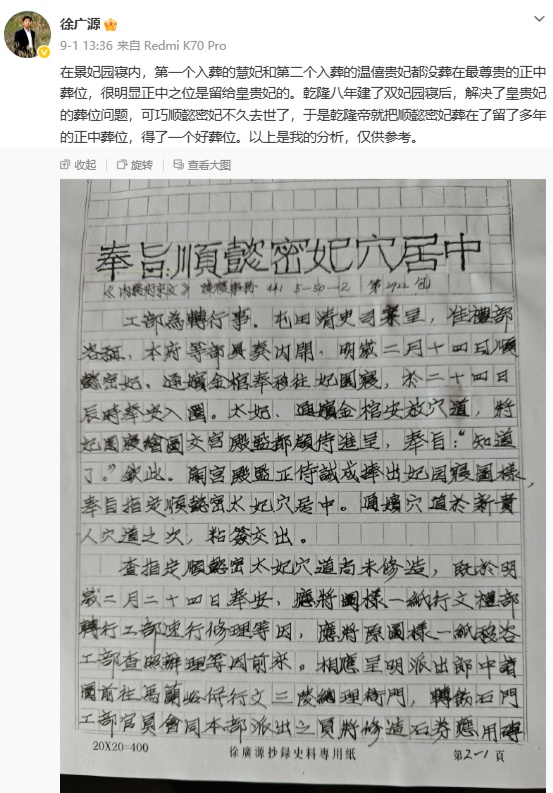 徐广源
9-1 13:36 来自 Redmi K70 Pro
在景妃园寝内，第一个入葬的慧妃和第二个入葬的温僖贵妃都没葬在最尊贵的正中
葬位，很明显正中之位是留给皇贵妃的。乾隆八年建了双妃园寝后，解决了皇贵妃
的葬位问题，可巧顺懿密妃不久去世了，于是乾隆帝就把顺懿密妃葬在了留了多年
的正中葬位，得了一个好葬位。以上是我的分析，仅供参考。
收起 旋转 查看大图
奉旨順懿密妃穴居中
《內務府來文》 441 5-50-2 第2922包
工部為轉行事。屯田清史司案呈，准禮部
咨稱，本府等部具奏內開，明歲二月十四日順
懿密妃、通嬪金棺奉移往妃園寢，於二十四日
辰時奉安入園。太妃、通嬪金棺安放穴道，將
妃園寢繪圖交宮殿監都領侍進呈，奉旨：“知道
了。”欽此。開宮殿監正侍誠成捧出妃园寢圖樣，
奉旨指定順懿密太妃穴居中。通嬪穴道於新貴
人穴道之次，粘簽交出。
查指定順懿密太妃穴道尚未修造，既於明
歲二月二十四日奉安，應將圖樣一紙行文禮部
轉行工部速行修理等因，應將原圖樣一紙移咨
工部查照辦理等因前來。相應呈明派出郎中諸
圖前往馬蘭峪併行文三陵總理衙門，轉飭石門
工部官員會同本部派出之員將修造石券應用磚
20X20=400 徐廣源抄録史料專用紙 第2-1頁